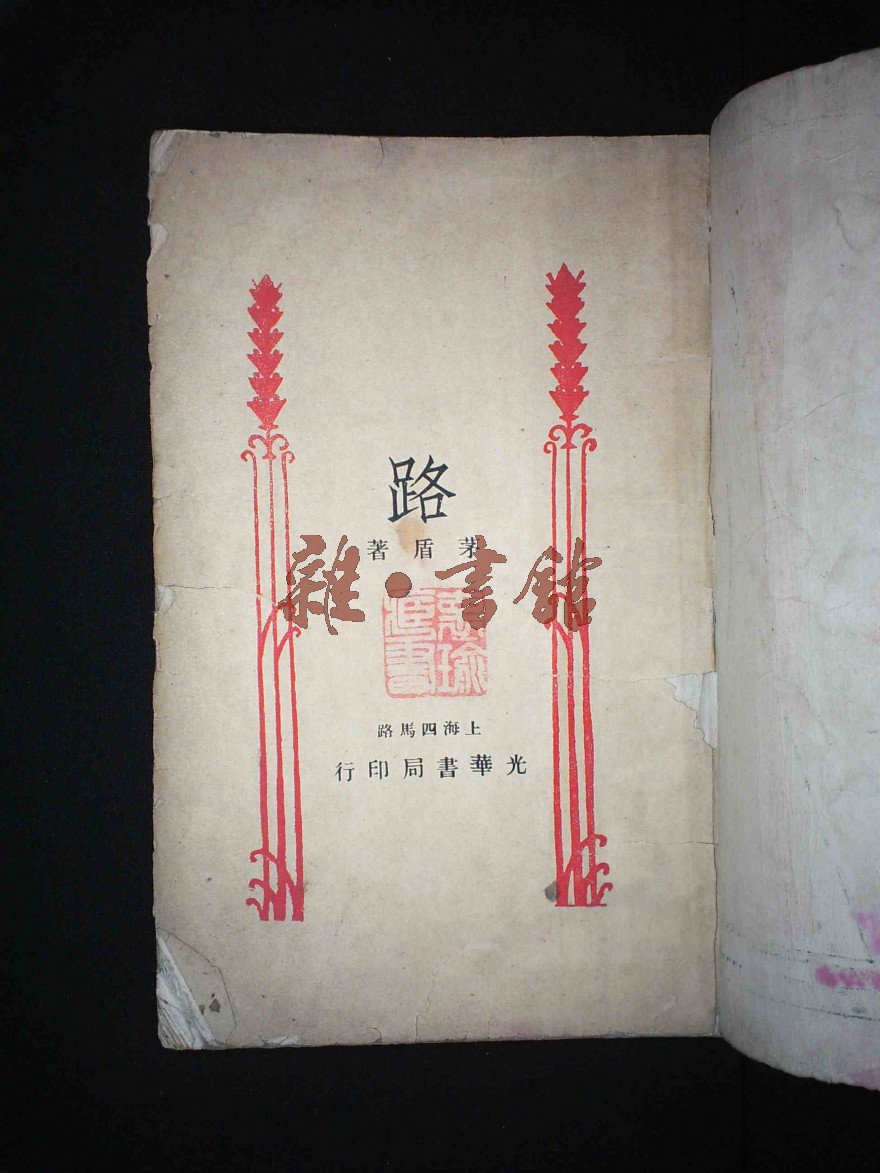 路
茅盾著
雜·書館
上海四馬路
光華書局印行